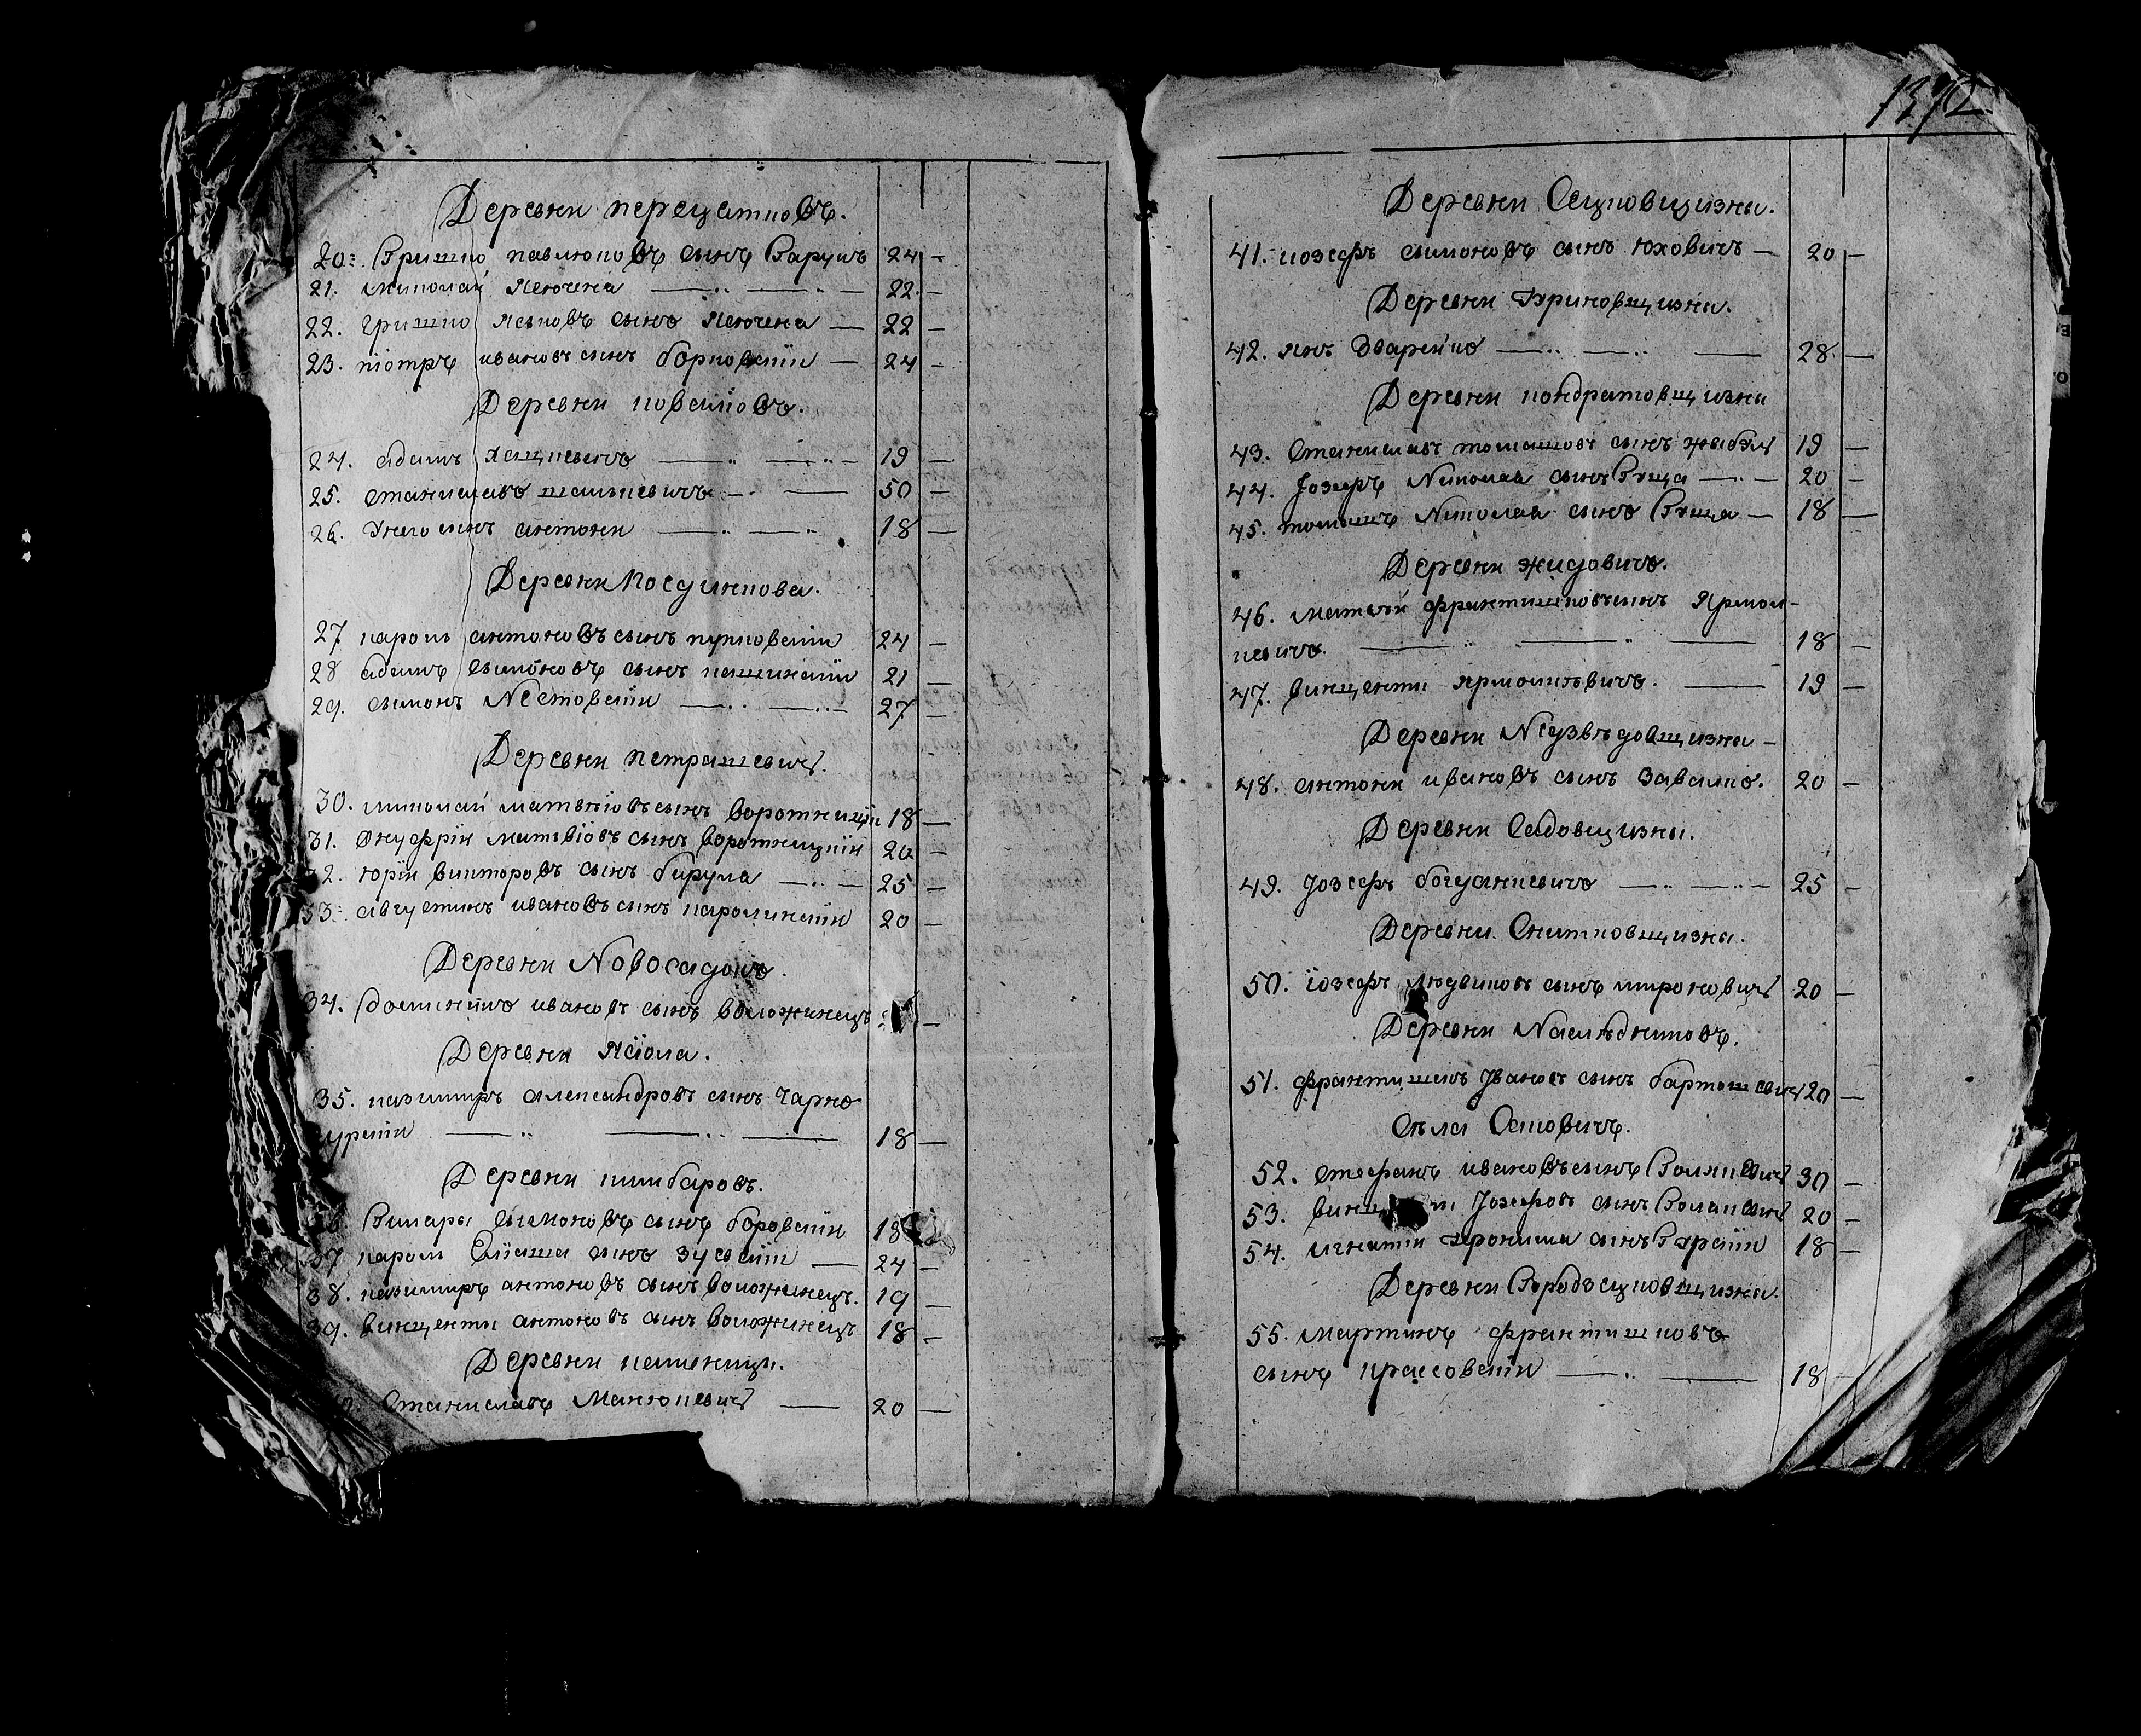 1372
Деревни перецатковъ.
20. Гришко павлюковъ сынъ Гарунъ 24 —
21. миколай Ясючена — 22. —
22. гришко Яськовъ сынъ Ясючена — 22 —
23. піотръ ивановъ сынъ борковскіи — 24 —
Деревни ковсаковъ.
24. адамъ Ящикевичъ — 19 —
25. станиславъ шалькевичъ — 50 —
26. Унего сынъ антони — 18 —
Деревни Посдункова.
27 кароль антоновъ сынъ пупковскіи 24 —
28 адамъ сымоновъ сынъ кашинскіи 21 —
29. сымонъ Nестовскіи — 27 —
Деревни петрашевичъ.
30. миколай матвѣіовъ сынъ воротницкіи 18 —
31. Онуфріи матвіовъ сынъ воротницкіи 20 —
32. юріи викторовъ сынъ бирула — 25 —
33. августинъ ивановъ сынъ каролинскіи 20 —
Деревни Nовосадокъ.
34. доминикъ ивановъ сынъ воложинецъ —
Деревни Ясіола.
35. казимиръ александровъ сынъ Чарно
цускіи — 18 —
Деревни кимбаровъ.
Гилары сымоновъ сынъ боровскіи 18
37 кароль Еліаша сынъ зуевскіи — 24 —
38. казимиръ антоновъ сынъ воложинецъ. 19 —
39. винценты антоновъ сынъ воложинецъ 18 —
Деревни каменицы.
Станиславъ Манюкевичъ — 20 —
Деревни Сацковщизны.
41. иозефъ сымоновъ сынъ юховичъ — 20 —
Деревни Гриновщизны.
42. янъ Зварейко — 28. —
Деревни кондратовщизны
43. Станиславъ томашовъ сынъ 19 —
44. Jозефъ Nиколая сынъ Гуща — 20 —
45. томашъ Nиколая сынъ Гуща — 18 —
Деревни жидовичъ.
46. матвѣй франтишковъ сынъ Ярмол-
кевичъ. — 18 —
47. винценти ярмолкѣвичъ. — 19 —
Деревни Nедзвѣдовщизны —
48. антони ивановъ сынъ Завалко. 20 —
Деревни Садовщизны.
49. Jозефъ богданкевичъ — 25 —
Деревни Снитковщизны.
50. іозефъ людвиковъ сынъ мироновичъ 20 —
Деревни Nаслѣдниковъ.
51. франтишекъ Jвановъ сынъ бартошевичъ 20 —
Сѣла Саковичъ.
52. стефанъ ивановъ сынъ Голякевичъ 30 —
53. Jозефовъ сынъ 20 —
54. игнатіи Іронима сынъ 18 —
Деревни Городзецковщизны.
55. мартинъ франтишковъ
сынъ красовскіи — 18 —